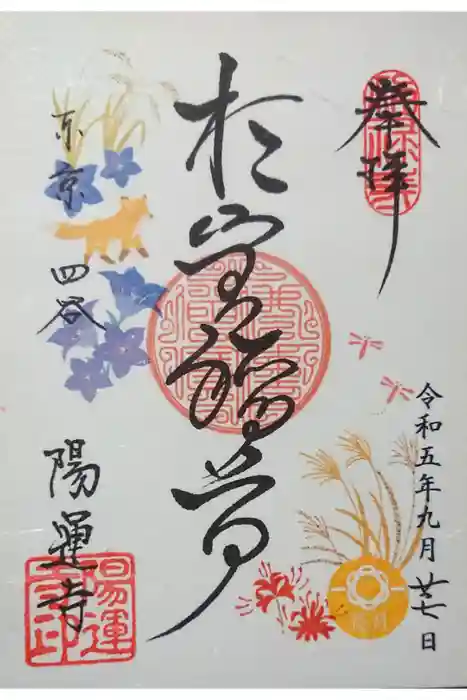 奉拝
令和五年九月廿七日
於岩稲荷
東京 四谷
陽運寺
陽運
寺印